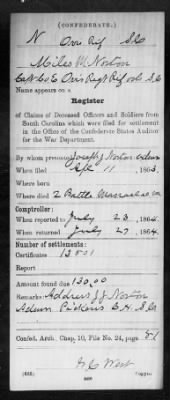 (CONFEDERATE.)
N Orrs Rif S C
Miles M Norton
Capt Co E Orr's Regt Rif Vol S C
Name appears on a
Register
of Claims of Deceased Officers and Soldiers from
South Carolina which were filed for settlement
in the Office of the Confederate States Auditor
for the War Department.
By whom presented Joseph J Norton Admr
When filed Apl 11, 1863.
Where born
Where died 2 Battle Manassas
Comptroller:
When reported to July 23, 1864.
When returned July 27, 1864.
Number of settlements:
Certificates 13501
Report
Amount found due 130.00
Remarks: Address J J Norton
Admr Pickens C H S C
Confed. Arch. Chap. 10, File No. 24, page 51
Copyist.